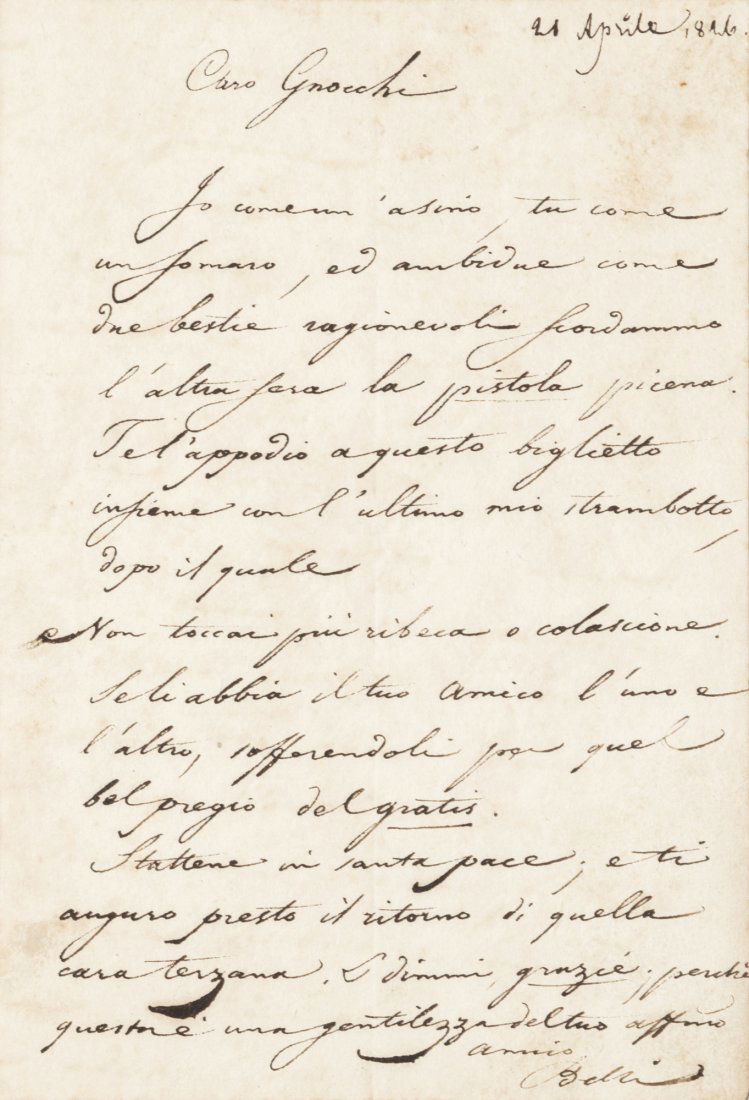 21 Aprile 1826.
Caro Gnocchi
Io come un' asino, tu come
un somaro, ed ambidue come
due bestie ragionevoli scordammo
l'altra sera la pistola picena.
Te l'appodio a questo biglietto
insieme con l'ultimo mio strambotto,
dopo il quale
Non toccai più ribeca o colascione.
Se li abbia il tuo amico l'uno e
l'altro, sofferendoli per quel
bel pregio del gratis.
Stattene in santa pace; e ti
auguro presto il ritorno di quella
cara terzana. E dimmi, grazie; perchè
questa è una gentilezza del tuo affmo
amico
Belli